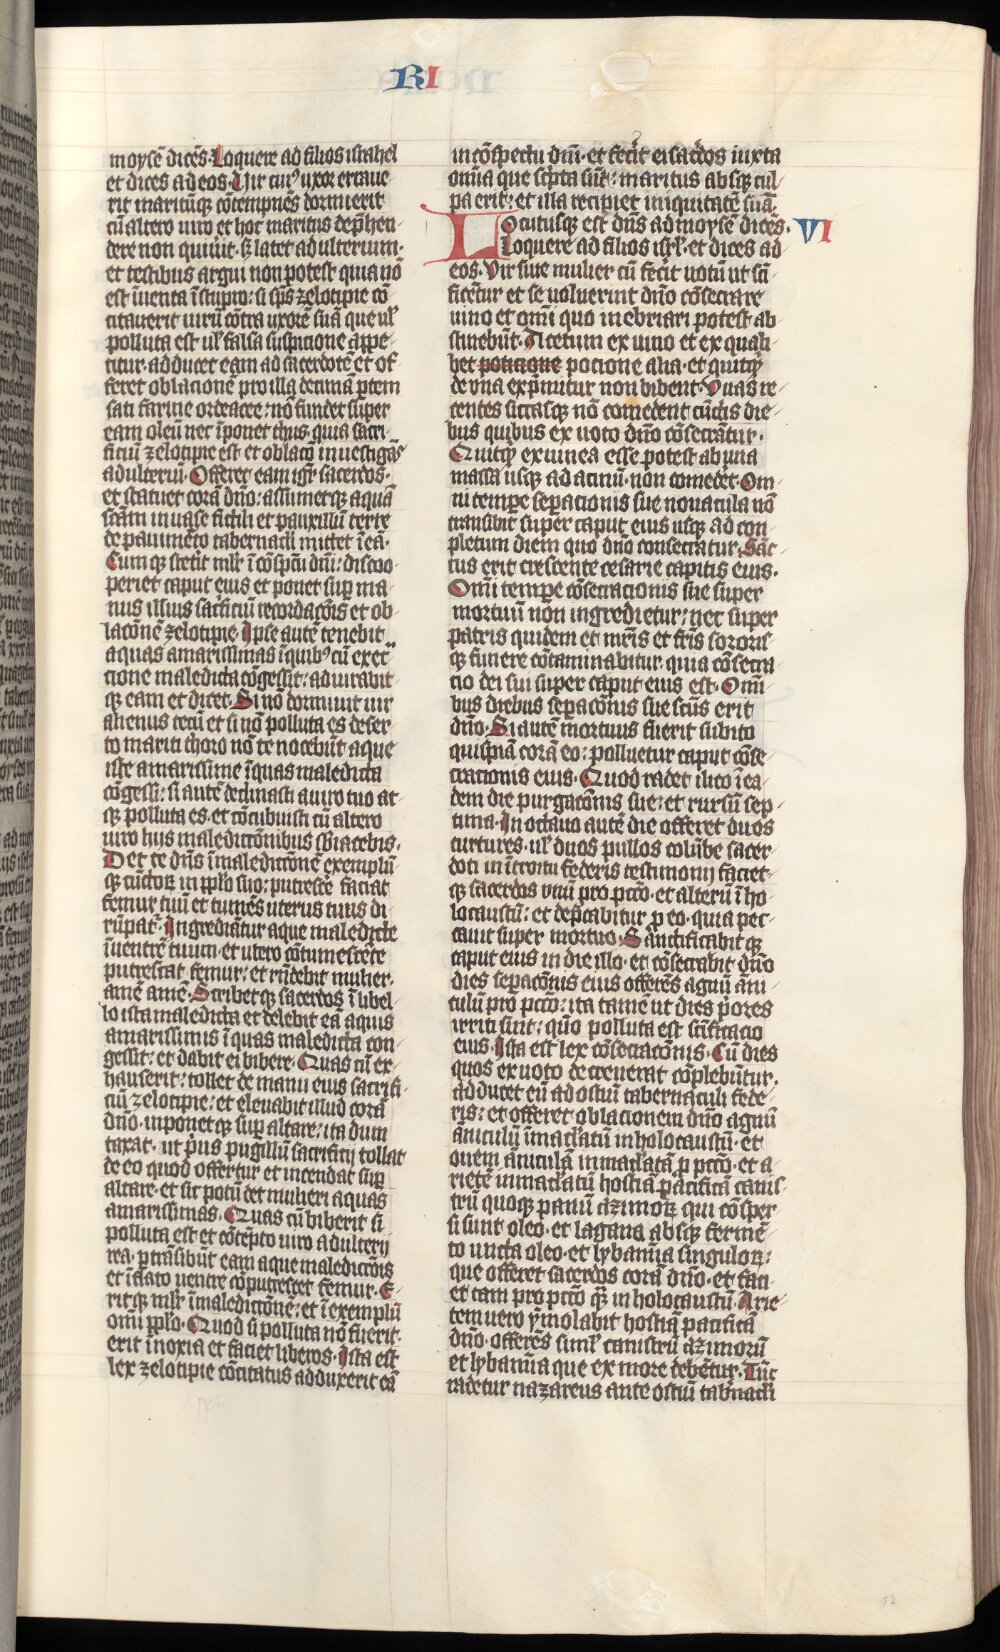 RI
moysē dicēs. Loquere ad filios israhel
et dices ad eos. Vir cui⁹ uxor erraue
rit maritūqꝫ cōtempnēs dormierit
cū altero uiro et hoc maritus dep̄hen
dere non quiuit. sꝫ latet adulterium.
et testibus argui non potest quia nō
est īuenta ī stupro: si sp̄s zelotipie cō
citauerit uirū cōtra uxorē suā que ul̓
polluta est ul̓ falsa suspicione appe
titur. adducet eam ad sacerdotē et of
feret oblacionē pro illa decimā p̄tem
sati farine ordeacee: nō fundet super
eam oleū nec īponet thus. quia sacri
ficiū zelotipie est et oblacō inuestigās
adulteriū. Offeret eam igr̄ sacerdos.
et statuet corā dn̄o: assumetqꝫ aquā
scām in uase fictili et pauxillū terre
de pauimēto tabernacli mittet ī eā.
Cumqꝫ stetit ml̓r ī cōspcū dn̄i: discoo
periet caput eius et ponet sup̱ ma
nus illius sacficiū recordacōis et ob
lacōnē zelotipie. Ipse autē tenebit
aquas amarissimas ī quib⁹ cū exec
cione maledicta cōgessit: adiurabit
qꝫ eam et dicet. Si nō dormiuit uir
alienus tecū et si nō polluta es deser
to mariti thoro nō te nocebūt aque
iste amarissime ī quas maledicta
cōgessi: si autē declinasti a uiro tuo at
qꝫ polluta es. et cōcubuisti cū altero
uiro hiis maledictōnibus sbiacebis.
Det te dn̄s ī maledictōnē exemplū
qꝫ cūctoꝝ in pp̄lo suo: putresce faciat
femur tuū et tumēs uterus tuus di
rūpat̄. Ingrediātur aque maledicte
ī uentrē tuum. et utero cōtumescēte
putrescat femur: et rn̄debit mulier.
amē amē. Scribetqꝫ sacerdos ī libel
lo ista maledicta et delebit eā aquis
amarissimis ī quas maledicta con
gessit: et dabit ei bibere. Quas cū ex
hauserit: tollet de manu eius sacrifi
ciū zelotipie: et eleuabit illud corā
dn̄o. inponetqꝫ sup̱ altare: ita dum
taxat. ut p̄us pugillū sacrificij tollat
de eo quod offertur et incendat sup̱
altare. et sic potū det mulieri aquas
amarissimas. Quas cū biberit si
polluta est et cōtēpto uiro adulterij
rea. p̱trāsibūt eam aque maledictōis
et īflato uentre cōputrescet femur. E
ritqꝫ ml̓r ī maledictōnē: et ī exemplū
omī pp̄lo. Quod si polluta nō fuerit.
erit inoxia et faciet liberos. Ista est
lex zelotipie cōcitatus adduxerit eā
in cōspectu dn̄i. et fecit ei sac̄dos iuxta
omīa que sc̄pta sūt: maritus absqꝫ cul
pa erit: et illa recipiet iniquitatē suā.
Locutusqꝫ est dn̄s ad moysē dicēs.
Loquere ad filios isrl̓. et dices ad
VI
eos. Vir siue mulier cū fecit uotū ut sc̄i
ficētur et se uoluerint dn̄o cōsecrare
uino et omī quo inebriari potest ab
stinebūt. Acetum ex uino et ex quali
bet potacione alia. et quitqͥd
de vua exp̄mitur non bibent. Vuas re
centes siccasqꝫ nō comedent cūctis die
bus quibus ex uoto dn̄o cōsecrātur.
Quitqͥd ex uinea esse potest ab uua
massa usqꝫ ad acinū. non comedēt. Om
ni tempe sep̱acionis sue nouacula nō
transibit super caput eius usqꝫ ad con
pletum diem quo dn̄o consecratur. Sāc
tus erit crescente cesarie capitis eius.
Omī tempe cōsecracionis sue super
mortuū non ingredietur: nec super
patris quidem et mr̄is et fr̄is sororis
qꝫ funere cōtaminabitur. quia cōsecra
cio dei sui super caput eius est. Omī
bus diebus sep̱acōnis sue sc̄us erit
dn̄o. Si autē mortuus fuerit subito
quispiā corā eo: polluetur caput cōse
crationis eius. Quod radet ilico ī ea
dem die purgacōnis sue: et rursū sep
tima. In octauo autē die offeret duos
turtures. ul̓ duos pullos colūbe sacer
doti in ītroitu federis testimonij faciet
qꝫ sacerdos vnū pro pccō. et alterū ī ho
locaustū: et dep̄cabitur p̱ eo. quia pec
cauit super mortuo. Sanctificabitqꝫ
caput eius in die illo. et cōsecrabit dn̄o
dies sep̱acōnis eius offerēs agnū āni
culū pro pccō: ita tamē ut dies p̄ores
irriti fiūt: qn̄o polluta est sc̄ificacio
eius. Ista est lex cōsecracōnis. Cū dies
quos ex uoto decreuerat cōplebūtur.
adducet eū ad ostiū tabernaculi fede
ris: et offeret oblacionem dn̄o agnū
āniculū īmaclatū in holocaustū. et
ouem āniculā inmaclatā p̱ pccō. et a
rietē inmaclatū hostiā pācificā canis
trū quoqꝫ panū azimoꝝ qui cōsper
si sunt oleo. et lagana absqꝫ fermē
to uncta oleo. et lybamīa singuloꝝ:
que offeret sacerdos corā dn̄o. et faci
et tam pro pccō qꝫ in holocaustū Arie
tem uero ymolabit hostiā pacificā
dn̄o. offerēs siml̓ canistrū azimorū
et lybamīa que ex more debētur. Tūc
radetur nazareus ante ostiū tab̄nacli
52